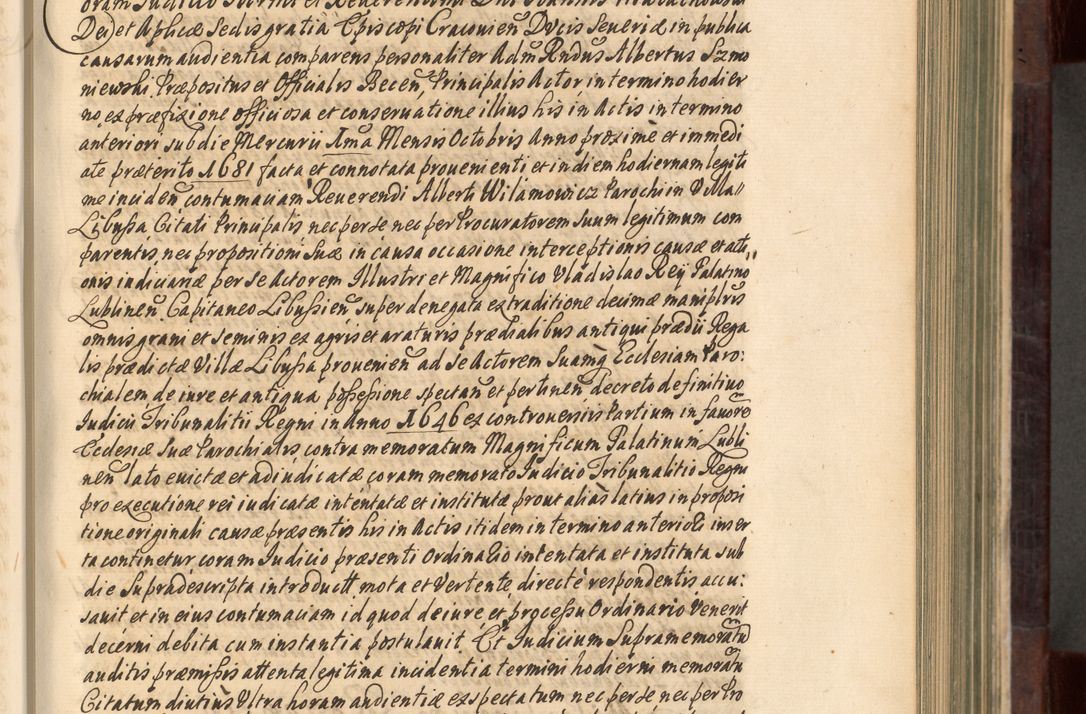 Dei et Aplicæ Sedis gratia Episcopi Cracovien̄ Ducis Severiæ in publica
causarum audientia comparens personaliter Adm Rndus Albertus Szmo
niewski Præpositus et Officialis Becen̄ Principalis Actor in termino hodier
no, ex præfixione officiosa et conservatione illius his in Actis in termino
anteriori sub die Mercurii 1ma Mensis Octobris Anno proximè et immedi
ate præterito 1681 facta et connotata provenienti et in diem hodiernam legiti
me inciden̄ contumaciam Reverendi Alberti Wilamowicz Parochi in Villa
Libussa Citati Principalis nec per se nec per Procuratorem suum legitimum com
parentis, nec propositioni suæ in causa occasione interceptionis causæ et acti
onis indiciariæ per se Actorem Illustri et Magnifico Vladislao Rey Palatino
Lublinen̄ Capitaneo Libussien̄ super denegata extraditione decimæ manipl̄ris
omnis grani et seminis ex agris et araturis prædialibus antiqui prædii Rega
lis prædictæ Villæ Libussa provenien̄ ad se Actorem Suamq̄ Ecclesiam Paro:
chialem de iure et antiqua possessione spectan̄ et pertinen̄ decreto definitivo
Judicii Tribunalitii Regni in Anno 1646 ex controversiis Partium in favore
Ecclesiæ suæ Parochialis contra memoratum Magnificum Palatinum Lubli
nen̄ lato evictæ et adiudicatæ coram memorato Judicio Tribunalitio Regni
pro executione rei iudicatæ intentatæ et institutæ prout alias latius in proposi
tione originali causæ præsentis his in Actis itidem in termino anteriori inser
ta continetur coram Judicio præsenti Ordinario intentata et instituta sub
die Supradescripta introducta mota et vertente directè respondentis accu:
savit et in eius contumaciam id quod de iure et processu Ordinario venerit
decerni debita cum instantia postulavit Et Judicium Supramemoratū
auditis præmissis attenta legitima incidentia termini hodierni memoratū
Citatum diutius Ultra horam audientiæ exspectatum nec per se nec per Pro